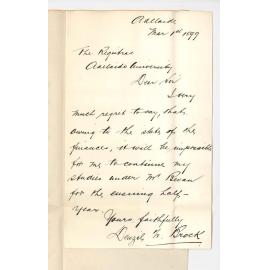 Adelaide
Mar 1st 1899
The Registrar
Adelaide University
Dear Sir
I very
much regret to say, that
owing to the state of the
finances, it will be impossible
for me to continue my
studies under Mr Bevan
for the ensuing half-
year.
Yours faithfully
Denzil G. Brock